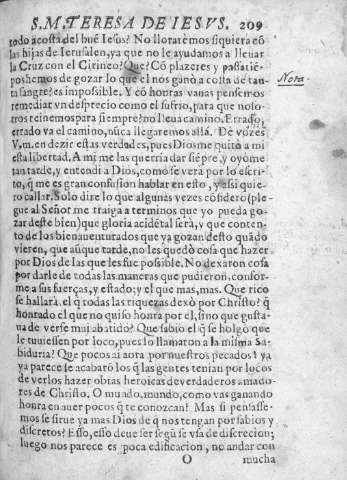 S. M. TERESA DE IESVS. 209
todo acosta del buẽ Iesus? No lloratèmos siquiera cõ
las hijas de Ierusalen, ya que no le ayudamos a lleuar
la Cruz con el Cirineo? Que? Cõ plazeres y passatiẽ-
pos hemos de gozar lo que el nos ganò a costa de tan-
ta sangre? es impossible. Y cõ honras vanas pensemos
Nota.
remediar vn desprecio como el sufrio, para que noso-
tros reinemos para siempre? no lleua camino. Errado,
errado va el camino, nũca llegaremos allá. De vozes
V.m. en dezir estas verdades, pues Dios me quitò a mi
esta libertad. A mi me las querria dar siẽpre, y oyome
tan tarde, y entendi a Dios, como se verà por lo escri-
to, q̃ me es gran confusion hablar en esto, y assi quie-
ro callar. Solo dire lo que algunas vezes cõsidero (ple-
gue al Señor me traiga a terminos que yo pueda go-
zar deste bien) que gloria acidẽtal serà, y que conten-
to de los bienauenturados que ya gozan desto quãdo
vieren, que aũque tarde, no les quedò cosa que hazer
por Dios de las que les fue possible. No dexaron cosa
por darle de todas las maneras que pudieron, confor-
me a sus fuerças, y estado; y el que mas, mas. Que rico
se hallarà, el q̃ todas las riquezas dexò por Christo? q̃
honrado el que no quiso honra por el, sino que gusta-
ua de verse mui abatido? Que sabio el q̃ se holgò que
le tuuiessen por loco, pues lo llamaron a la misma Sa-
biduria? Que pocos ai aora por nuestros pecados! ya
ya parece se acabarõ los q̃ las gentes tenian por locos
de verlos hazer obras heroicas de verdaderos amado-
res de Christo. O mundo, mundo, como vas ganando
honra en auer pocos q̃ te conozcan! Mas si pensasse-
mos se sirue ya mas Dios de q̃ nos tengan por sabios y
discretos? Esso, esso deue ser segũ se vsa de discrecion;
luego nos parece es poca edificacion, no andar con
O mucha